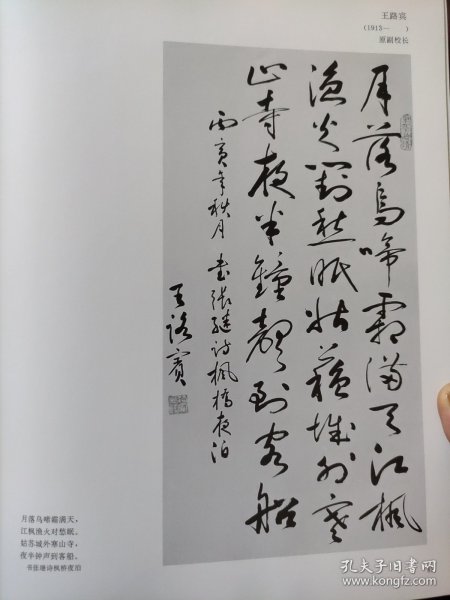 王路宾
(1913— )
原副校长
月落乌啼霜满天江枫
渔火对愁眠姑苏城外寒
山寺夜半钟声到客船
丙寅年秋月 书张继诗枫桥夜泊
王路宾
月落乌啼霜满天，
江枫渔火对愁眠。
姑苏城外寒山寺，
夜半钟声到客船。
书张继诗枫桥夜泊
孔夫子旧书网